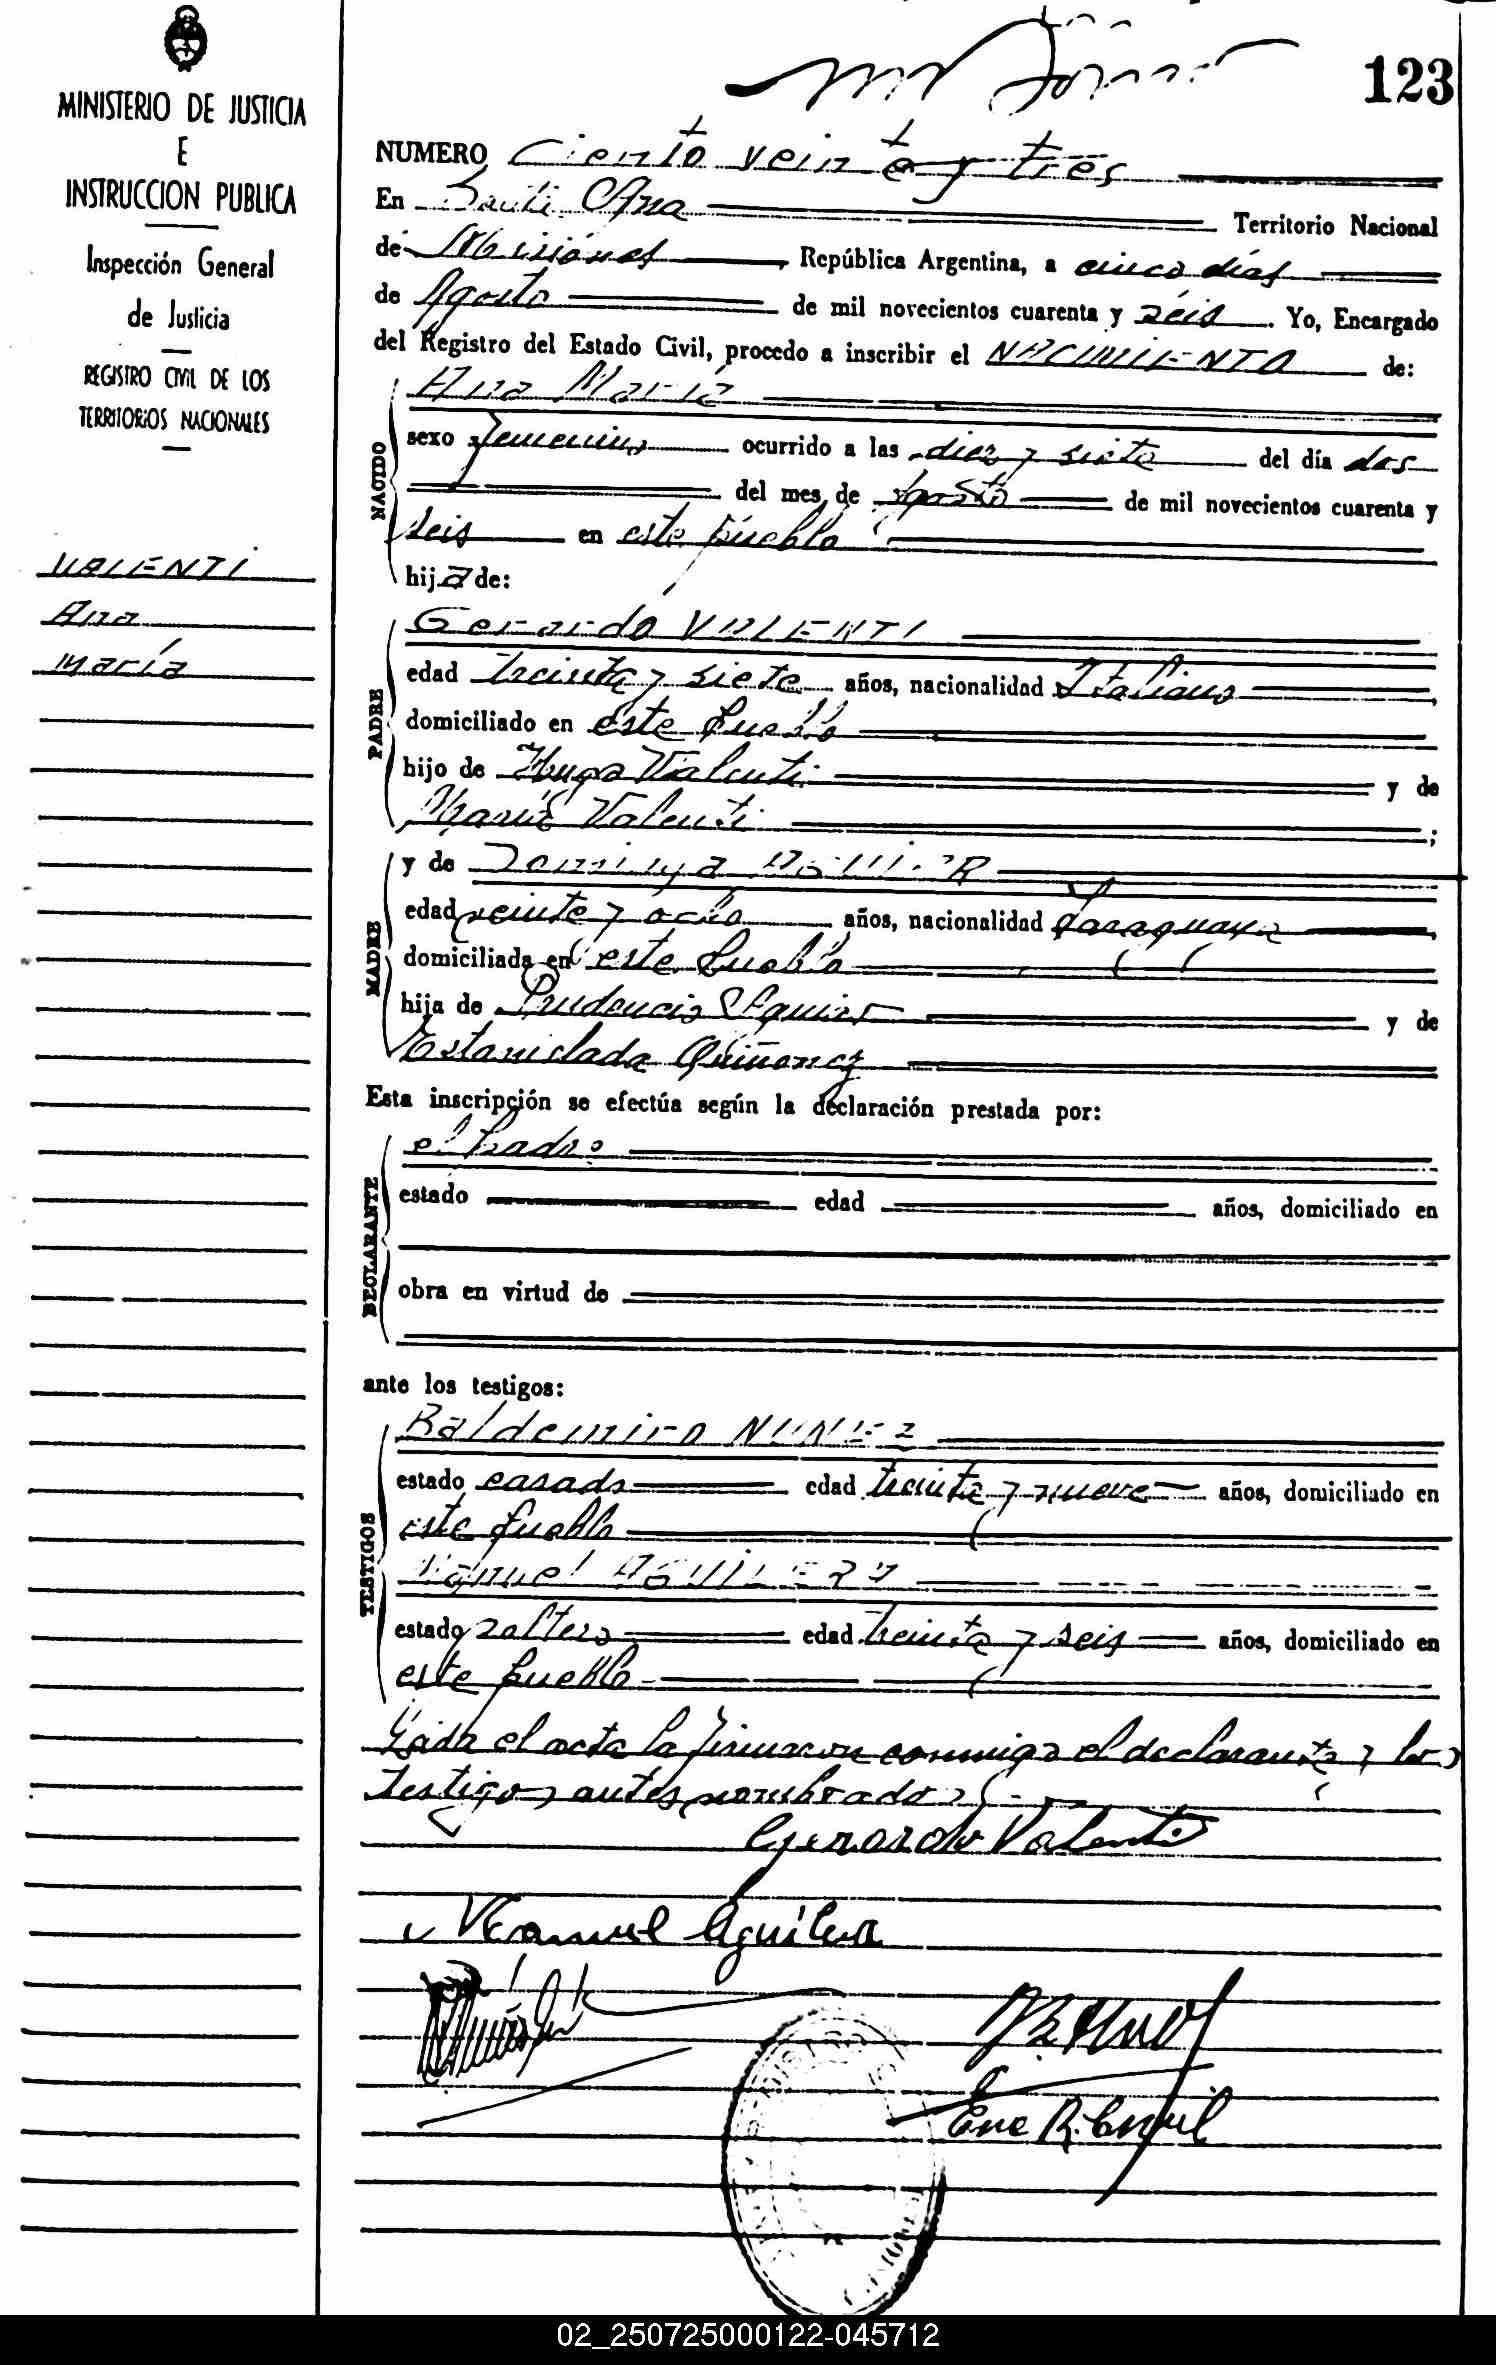 123
MINISTERIO DE JUSTICIA
E
INSTRUCCION PUBLICA
Inspección General
de Justicia
REGISTRO CIVIL DE LOS
TERRITORIOS NACIONALES
VALENTI
Ana
María
NUMERO Ciento veinte y tres
En Santa Ana Territorio Nacional
de Misiones, República Argentina, a cinco días
de Agosto de mil novecientos cuarenta y seis. Yo, Encargado
del Registro del Estado Civil, procedo a inscribir el NACIMIENTO de:
NACIDO
Ana María
sexo femenino ocurrido a las diez y siete del día dos
del mes de agosto de mil novecientos cuarenta y
seis en este pueblo
hija de:
PADRE
Gerardo VALENTI
edad treinta y siete años, nacionalidad Italiano
domiciliado en este pueblo
hijo de Hugo Valenti y de
María Valenti;
MADRE
y de Dominga
edad veinte y ocho años, nacionalidad paraguaya
domiciliada en este pueblo
hija de Prudencio y de
Estanislada Quiñonez
Esta inscripción se efectúa según la declaración prestada por:
DECLARANTE
el padre
estado edad años, domiciliado en
obra en virtud de
ante los testigos:
TESTIGOS
Baldemiro NUÑEZ
estado casado edad treinta y nueve años, domiciliado en
este pueblo
Manuel AGUILERA
estado soltero edad treinta y seis años, domiciliado en
este pueblo
Leida el acta la firmaron conmigo el declarante y los
testigos antes nombrados
Gerardo Valenti
Manuel Aguilera
02_250725000122-045712